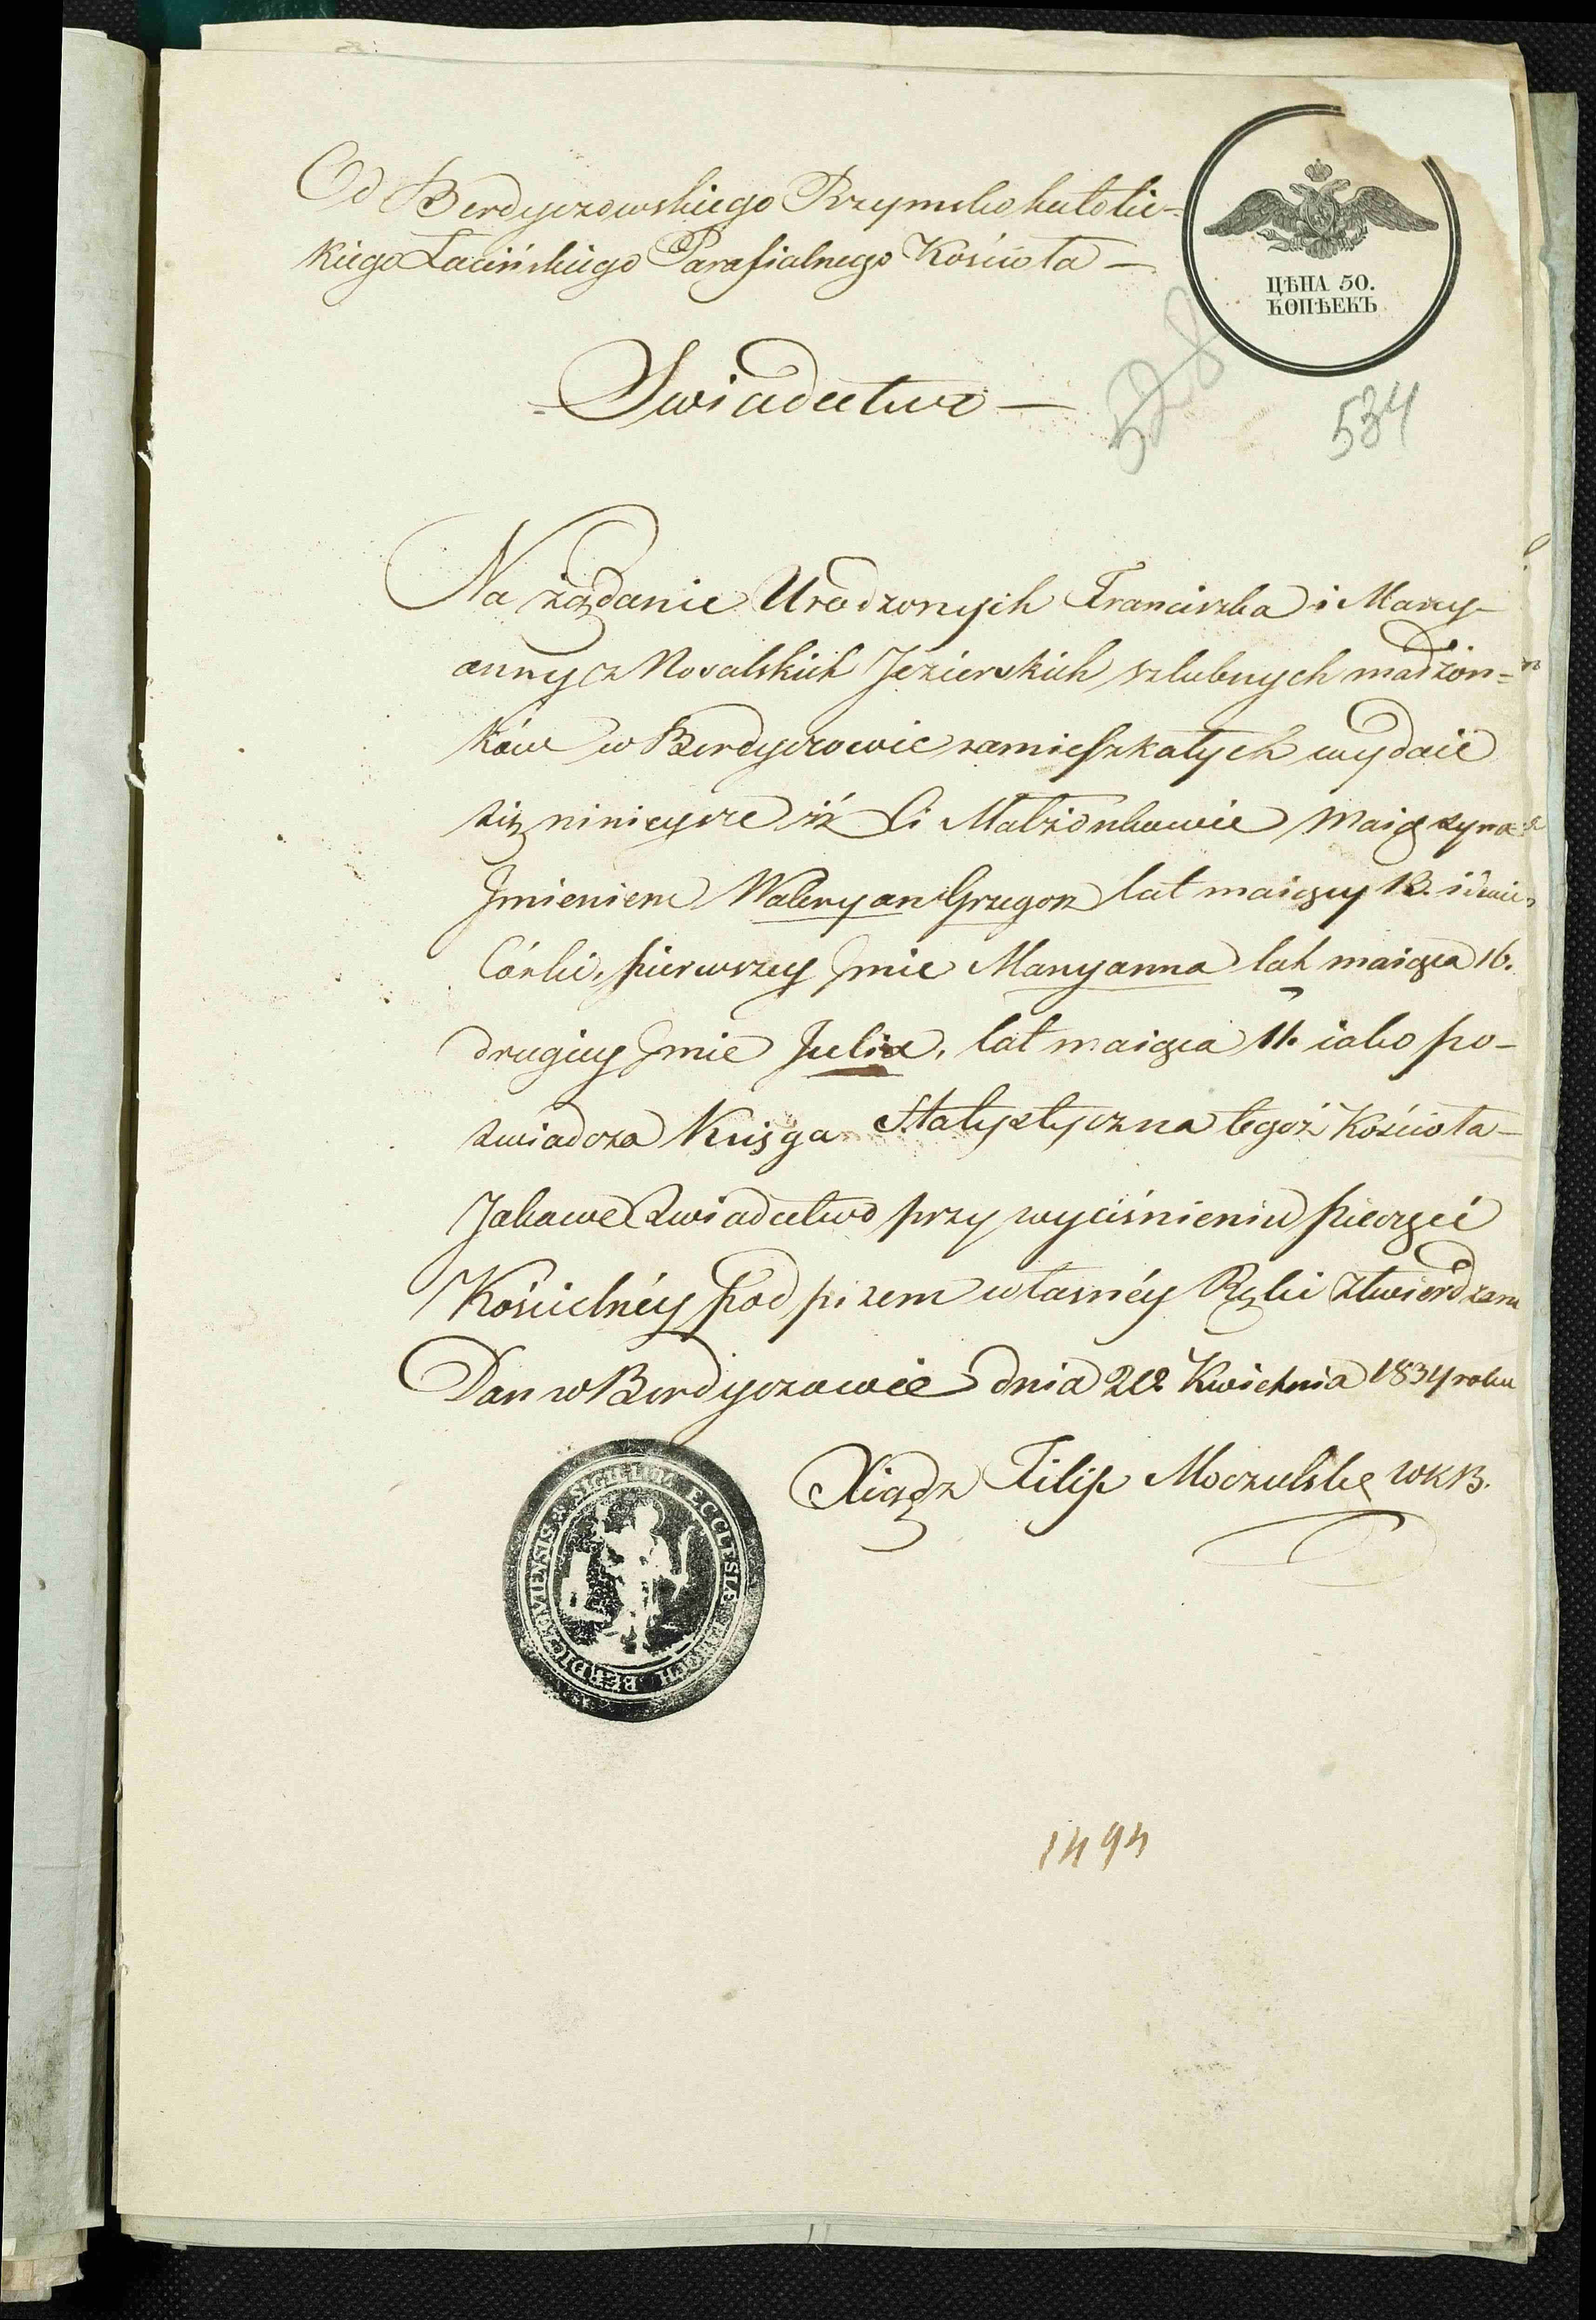 Od Berdyczowskiego Rzymsko katolic-
kiego Łacińskiego Parafialnego Kościoła —
ЦѢНА 50.
КОПѢЕКЪ
528
534
Swiadectwo —
Na żądanie Urodzonych Franciszka i Mary-
anny z Nosalskich Jezierskich szlubnych madżon=
ków w Berdyczowie zamieszkałych wydaie
się ninieysze iż Ci Małżonkowie maią syna
Jmieniem Waleryan Grzegorz lat maiący 13. i dwie
Córki, pierwszey Jmie Maryanna lat maiąca 16.
drugiey Jmie Julia, lat maiąca 11. iako po-
swiadcza Księga Statystyczna tegoż Kościoła —
Jakowe Swiadectwo przy wyciśnieniu pieczęci
Kościelnéy Pod pisem własnéy Ręki ztwierdzam
Dan w Berdyczowie dnia Kwietnia 1834 roku
Xiądz Filip Moczulski WKB.
SIGILLUM ECCLESIÆ PAROCH BERDICZOVIENSIS
1494